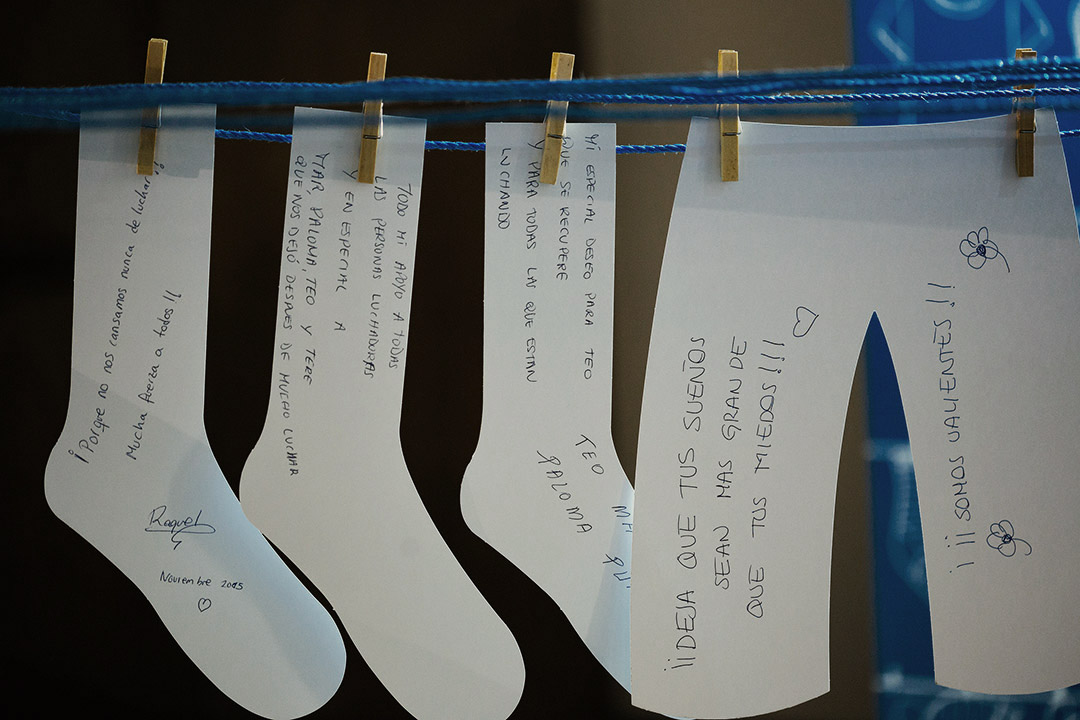 ¡Porque no nos cansamos nunca de luchar!!
Mucha fuerza a todos!!
Raquel
Noviembre 2015
TODO MI APOYO A TODAS
LAS PERSONAS LUCHADORAS
Y EN ESPECIAL A
MAR, PALOMA, TEO Y TERE
QUE NOS DEJÓ DESPUES DE MUCHO LUCHAR
MI ESPECIAL DESEO PARA TEO
QUE SE RECUPERE
Y PARA TODAS LAS QUE ESTAN
LUCHANDO
TEO
PALOMA
¡¡DEJA QUE TUS SUEÑOS
SEAN MAS GRANDE
QUE TUS MIEDOS!!!
¡¡¡ SOMOS VALIENTES!!